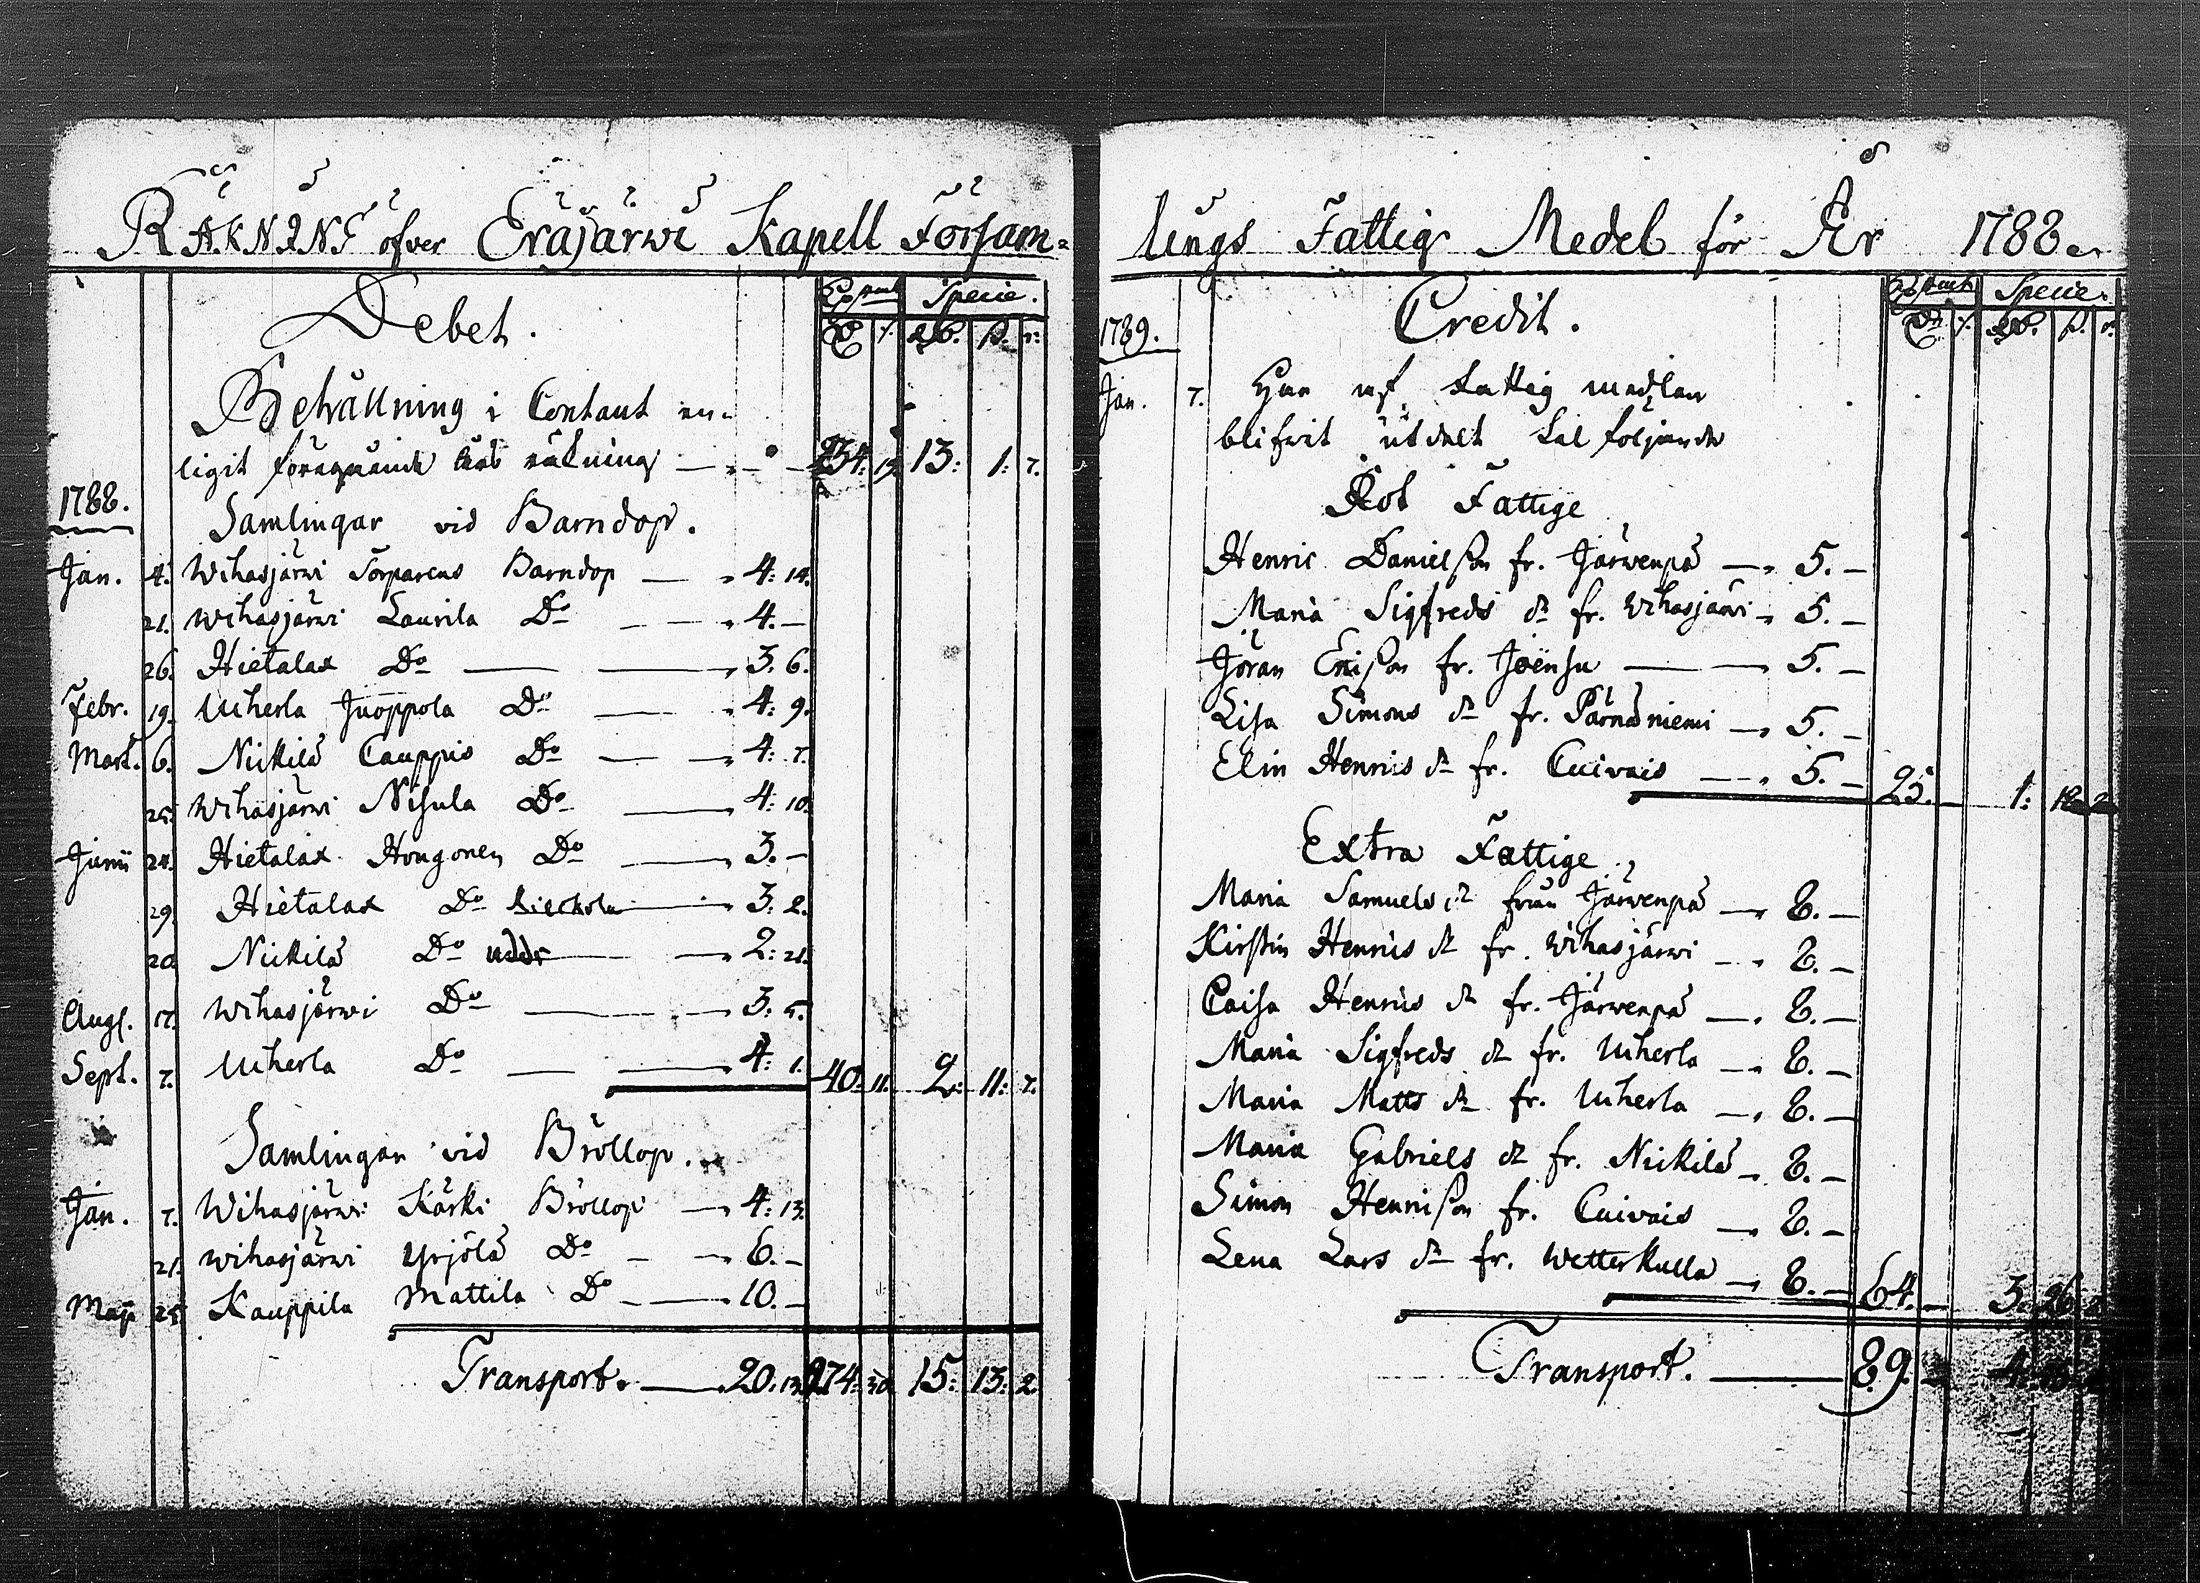 RÄKNING öfver Eräjärwi Kapell Försam=
Debet.
Specie.
Behållning i Contant en-
ligit föregående års räkning — 234: 19. 13: 1: 7.
1788.
Samlingar vid Barndop.
Jan. 4. Wihasjärwi Torparens Barndop — 4: 14.
21. Wihasjärwi Laurila Do — 4. —
26. Hietalax Do — 3. 6.
Febr. 19. Uiherla Juoppola Do — 4: 9.
Mart. 6. Niickilä Cauppis Do — 4: 7.
25. Wihasjärwi Nisula Do — 4: 10.
Junii 24. Hietalax Hongonen Do — 3. —
29. Hietalax Do — 3: 2.
20. Niickilä Do — 2: 21.
Aug. 17. Wihasjärwi Do — 3. 5.
Sept. 7. Uiherla Do — 4: 1. 40: 11. 2: 11: 7.
Samlingar vid Bröllop.
Jan. 7. Wihasjärwi Kärki Bröllop — 4: 13.
21. Wihasjärwi Yrjölä Do — 6. —
Maji 25. Kauppila Mattila Do — 10. —
Transport. — 20. 13. 274: 30. 15: 13: 2.
lings Fattig Medel för År 1788.
Credit.
Specie.
1789.
Jan. 7. Har af Fattig medlen
blifvit utdelt till följande
Rot Fattige
Henric Danielsson fr. Järwenpä — 5. —
Maria Sigfreds dr fr. Wihasjärwi — 5. —
Jöran Ericsson fr. Joensu — 5. —
Lisa Simons dr fr. Pärnäniemi — 5. —
Elin Henrics dr fr. Cuivais — 5. — 25. — 1: 18. 2.
Extra Fattige.
Maria Samuels dr från Järwenpä — 8. —
Kirstin Henrics dr fr. Wihasjärwi — 8. —
Caisa Henrics dr fr. Järwenpä — 8. —
Maria Sigfreds dr fr. Uiherla — 8. —
Maria Matts dr fr. Uiherla — 8. —
Maria Gabriels dr fr. Niickilä — 8. —
Simon Henricsson fr. Cuivais — 8. —
Lena Lars dr fr. Wetterkulla — 8. — 64. — 3: 26.
Transport. — 89.